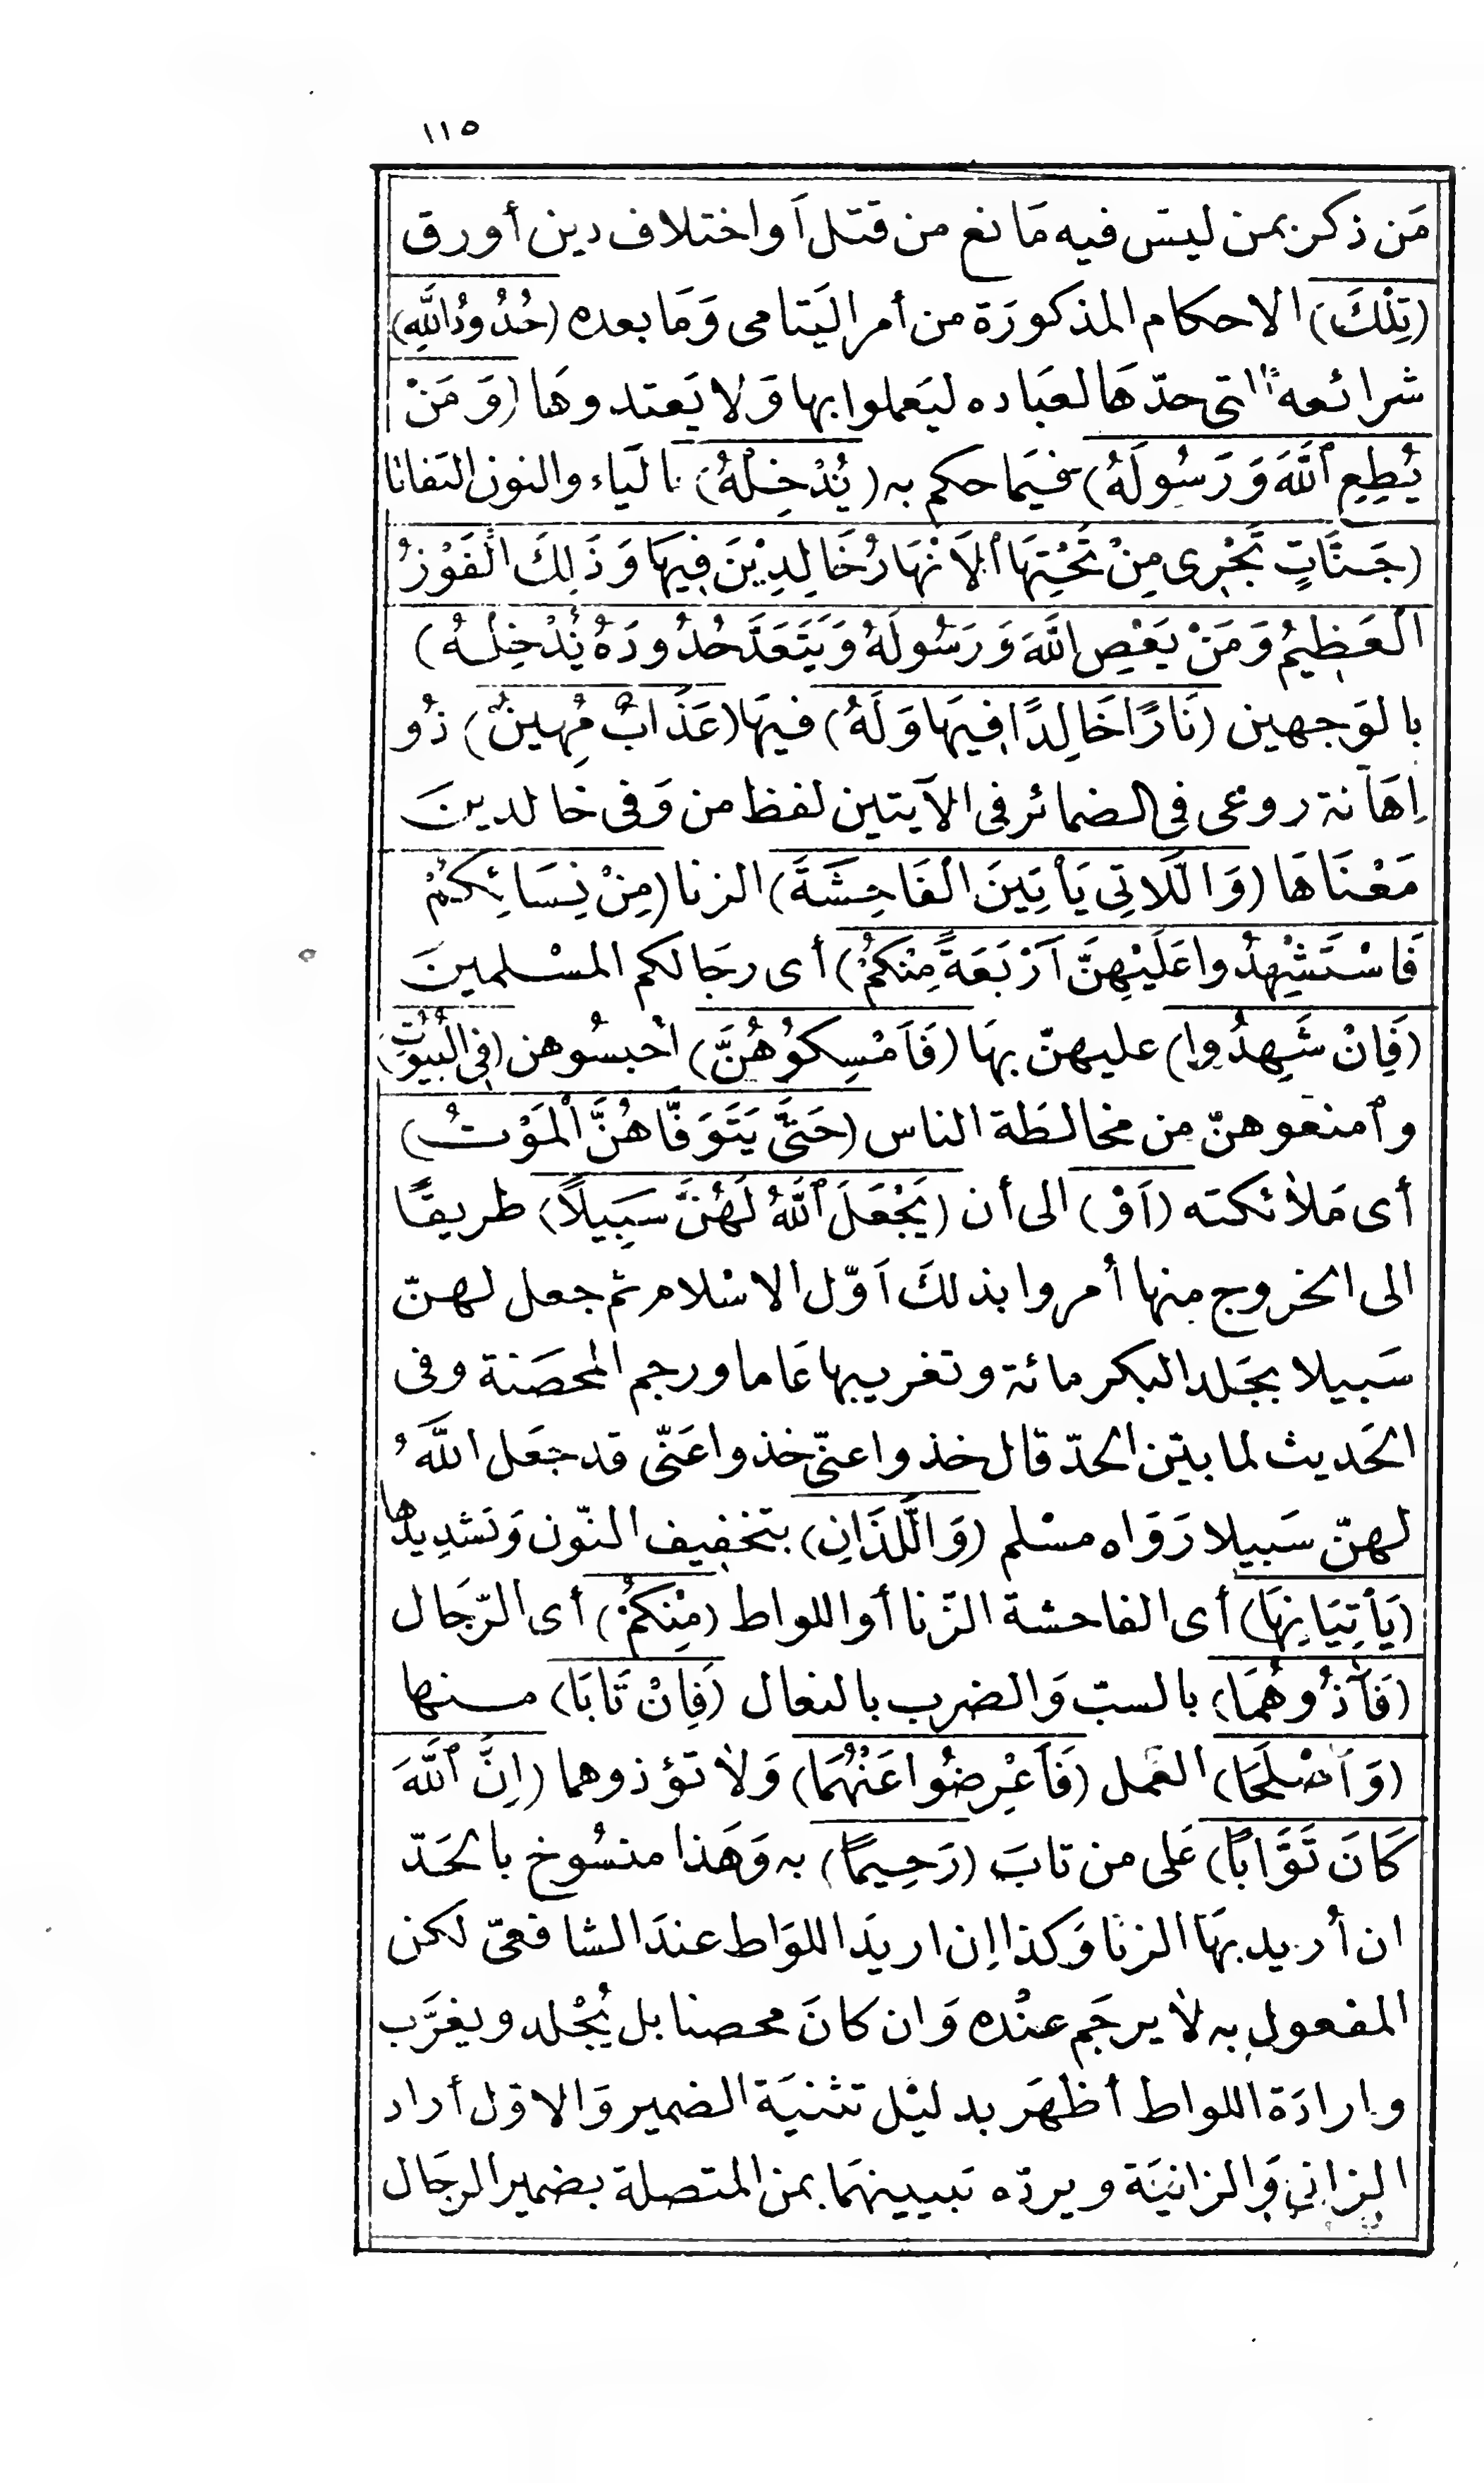 ١١٥
مَن ذكر بمن ليسَ فيه مَانع من قتل اَو اختلاف دين أو رق
(تِلْكَ) الاحكام المذكورَة من أمر اليَتامى وَمَا بعده (حُدُودُ اللَّهِ)
شرائعه التى حدّهَا لعبَاده ليَعملوا بها وَلا يَعتدوهَا (وَمَنْ
يُطِعِ ٱللَّهَ وَرَسُولَهُ) فيمَا حكم به (يُدْخِلْهُ) باليَاء والنون التفاتا
(جَنَّاتٍ تَجْرِى مِنْ تَحْتِهَا ٱلْاَنْهَارُ خَالِدِيْنَ فِيهَا وَذَلِكَ الْفَوْزُ
الْعَظِيمُ وَمَنْ يَعْصِ اللَّهَ وَرَسُولَهُ وَيَتَعَدَّ حُدُودَهُ يُدْخِلْهُ)
بالوَجهين (نَارًا خَالِدًا فِيهَا وَلَهُ) فيهَا (عَذَابٌ مُهِينٌ) ذُو
اِهَانة روعى فى الضمائر فى الآيتين لفظ من وَفى خالدينَ
مَعْنَاهَا (وَالَّلَاتِى يَأْتِينَ الْفَاحِشَةَ) الزنا (مِنْ نِسَائِكُمْ
فَاسْتَشْهِدُوا عَلَيْهِنَّ اَرْبَعَةً مِنْكُمْ) أى رجَالكم المسْلمينَ
(فَاِنْ شَهِدُوا) عليهنّ بهَا (فَاَمْسِكُوهُنَّ) اُحبسُوهن (فِى الْبُيُوتِ)
وٱمنعوهنّ من مخالطَة الناس (حَتَّى يَتَوَفَّاهُنَّ الْمَوْتُ)
أى مَلائكته (اَوْ) الى أن (يَجْعَلَ ٱللَّهُ لَهُنَّ سَبِيلًا) طريقًا
الى الخروج منها أمروا بذلكَ اَوّل الاسْلام ثم جعل لهنّ
سَبيلا بجَلد البكر مائة وتغريبها عَاما ورجم المحصَنة وفى
الحَديث لما بيّن الحدّ قال خذوا عنّى خذوا عَنّى قد جعَل اللَّهُ
لهنّ سَبيلا رَوَاه مسْلم (وَالَّلذَانِ) بتخفيف النّون وَتشديدها
(يَأْتِيَانِهَا) أى الفاحشة الزّنا أو اللواط (مِنْكُمْ) أى الرّجَال
(فَآذُوهُمَا) بالسبّ وَالضرب بالنعال (فَاِنْ تَابَا) منها
(وَاَصْلَحَا) العَمل (فَاَعْرِضُوا عَنْهُمَا) وَلا تؤذوهما (اِنَّ ٱللَّهَ
كَانَ تَوَّابًا) عَلى من تابَ (رَحِيمًا) به وَهَذا منسُوخ بالحَدّ
ان أريد بهَا الزنا وَكذا اِن اريدَ اللوَاط عندَ الشافعىّ لكن
المفعول به لا يرجَم عنْده وَان كانَ محصنا بل يُجْلد ويغرَّب
وارادَة اللواط أظهَر بدليْل تثنيَة الضمير وَالاوّل أراد
الزانى وَالزانيَة ويردّه تبيينهمَا بمن المتصلة بضمير الرجَال